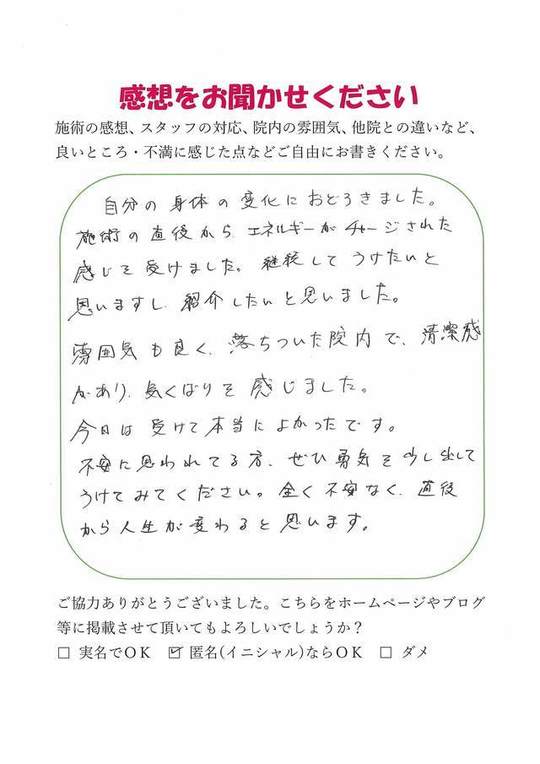 感想をお聞かせください
施術の感想、スタッフの対応、院内の雰囲気、他院との違いなど、
良いところ・不満に感じた点などご自由にお書きください。
自分の身体の変化におどろきました。
施術の直後から、エネルギーがチャージされた
感じを受けました。継続してうけたいと
思いますし、紹介したいと思いました。
雰囲気も良く、落ちついた院内で、清潔感
があり、気くばりを感じました。
今日は受けて本当によかったです。
不安に思われてる方、ぜひ勇気を少し出して
うけてみてください。全く不安なく、直後
から人生が変わると思います。
ご協力ありがとうございました。こちらをホームページやブログ
等に掲載させて頂いてもよろしいでしょうか？
□ 実名でOK ☑ 匿名(イニシャル)ならOK □ ダメ